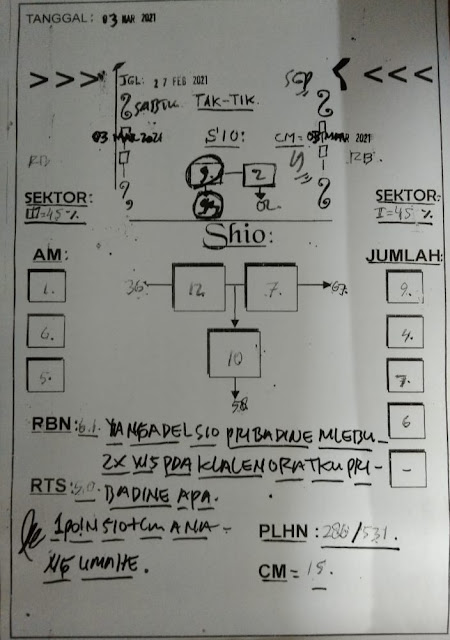 TANGGAL: 03 MAR 2021
>>> <<<
JGL: 27 FEB 2021
SABTU TAK-TIK.
03 MAR 2021 S'IO: CM= 03 MAR 2021
RB RB.
9. 2
02
SEKTOR: SEKTOR:
III=45 % I=45 %
Shio:
AM: JUMLAH:
36 12. 7. 67.
1. 9.
6. 4.
10
5. 7.
58
6
RBN: 6.1. YANGADELSIO PRIBADINE MLEBU-
2X WS PDA KLALEN ORA TKU PRI- -
RTS: 5.0. BADINE APA.
1POIN SIO+CM ANA-
NG UMAHE. PLHN: 286/531.
CM= 15.